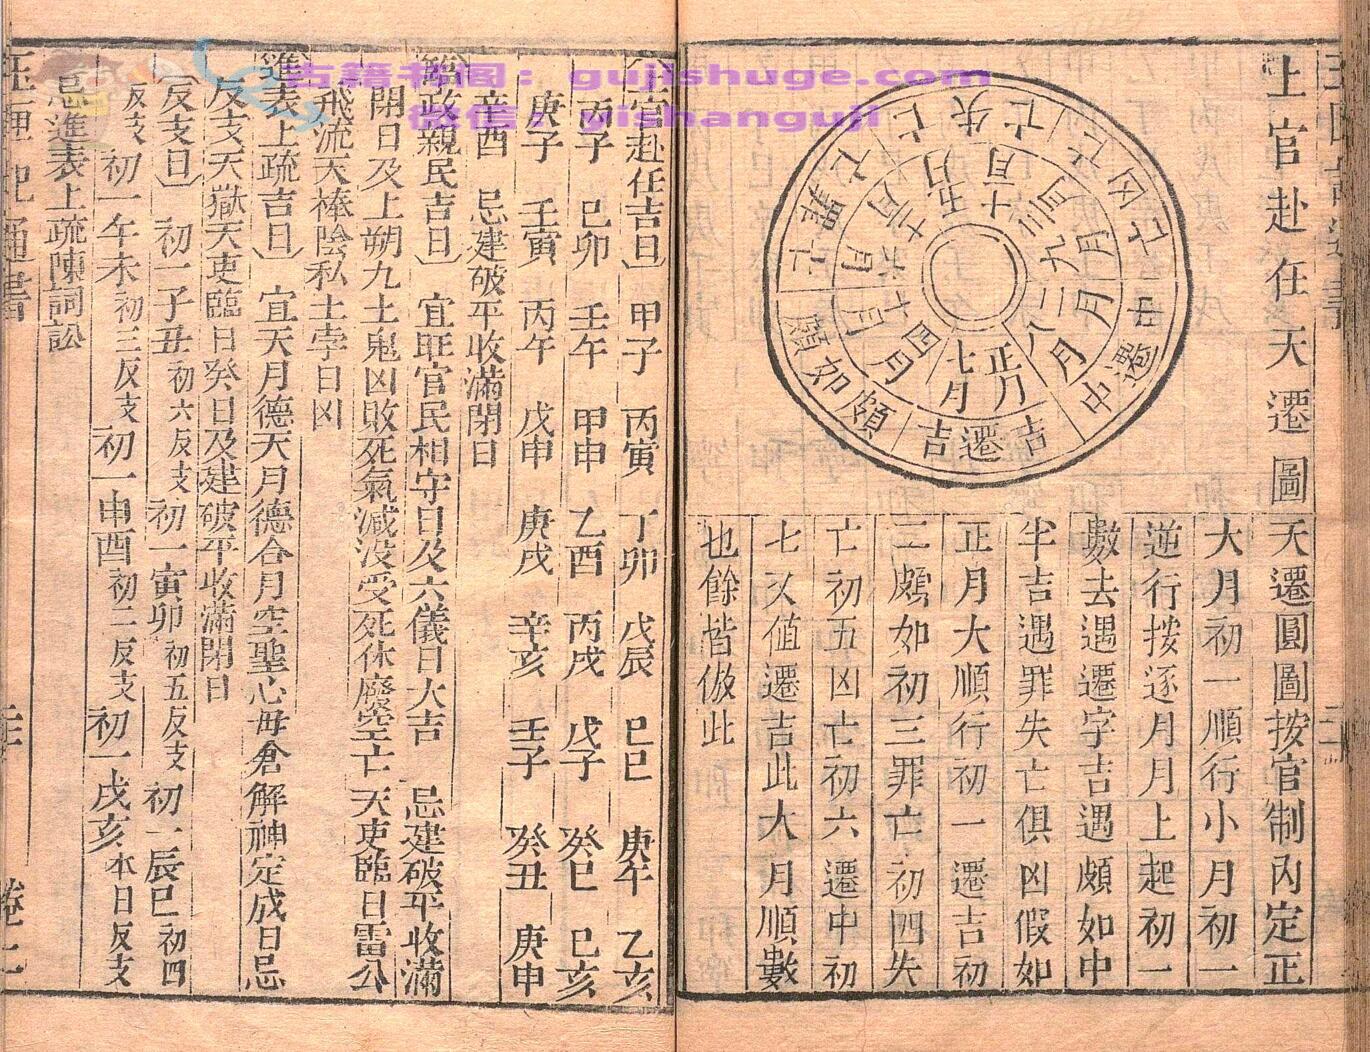 古籍书阁：gujishuge.com
微信：yishanguji
上官赴任天遷圖
吉遷吉
中遷中
凶亡
失亡
罪亡
頗如頗
正月
七月
八月
二月
三月
九月
十月
四月
五月
十一月
十二月
六月
天遷圓圖按官制內定正
大月初一順行小月初一
逆行按逐月月上起初一
數去遇遷字吉遇頗如中
半吉遇罪失亡俱凶假如
正月大順行初一遷吉初
二頗如初三罪亡初四失
亡初五凶亡初六遷中初
七又值遷吉此大月順數
也餘皆倣此
上官赴任吉日 甲子 丙寅 丁卯 戊辰 己巳 庚午 乙亥
丙子 己卯 壬午 甲申 乙酉 丙戌 戊子 癸巳 己亥
庚子 壬寅 丙午 戊申 庚戌 辛亥 壬子 癸丑 庚申
辛酉 忌建破平收滿閉日
臨政親民吉日 宜旺官民相守日及六儀日大吉 忌建破平收滿
閉日及上朔九土鬼凶敗死氣滅没受死休廢空亡天吏臨日雷公
飛流天棒陰私土孛日凶
進表上疏吉日 宜天月德天月德合月空聖心母倉解神定成日忌
反支天獄天吏臨日癸日及建破平收滿閉日
反支日 初一子丑初六反支 初一寅卯初五反支 初一辰巳初四
反支 初一午未初三反支 初一申酉初二反支 初一戌亥本日反支
忌進表上疏陳詞訟